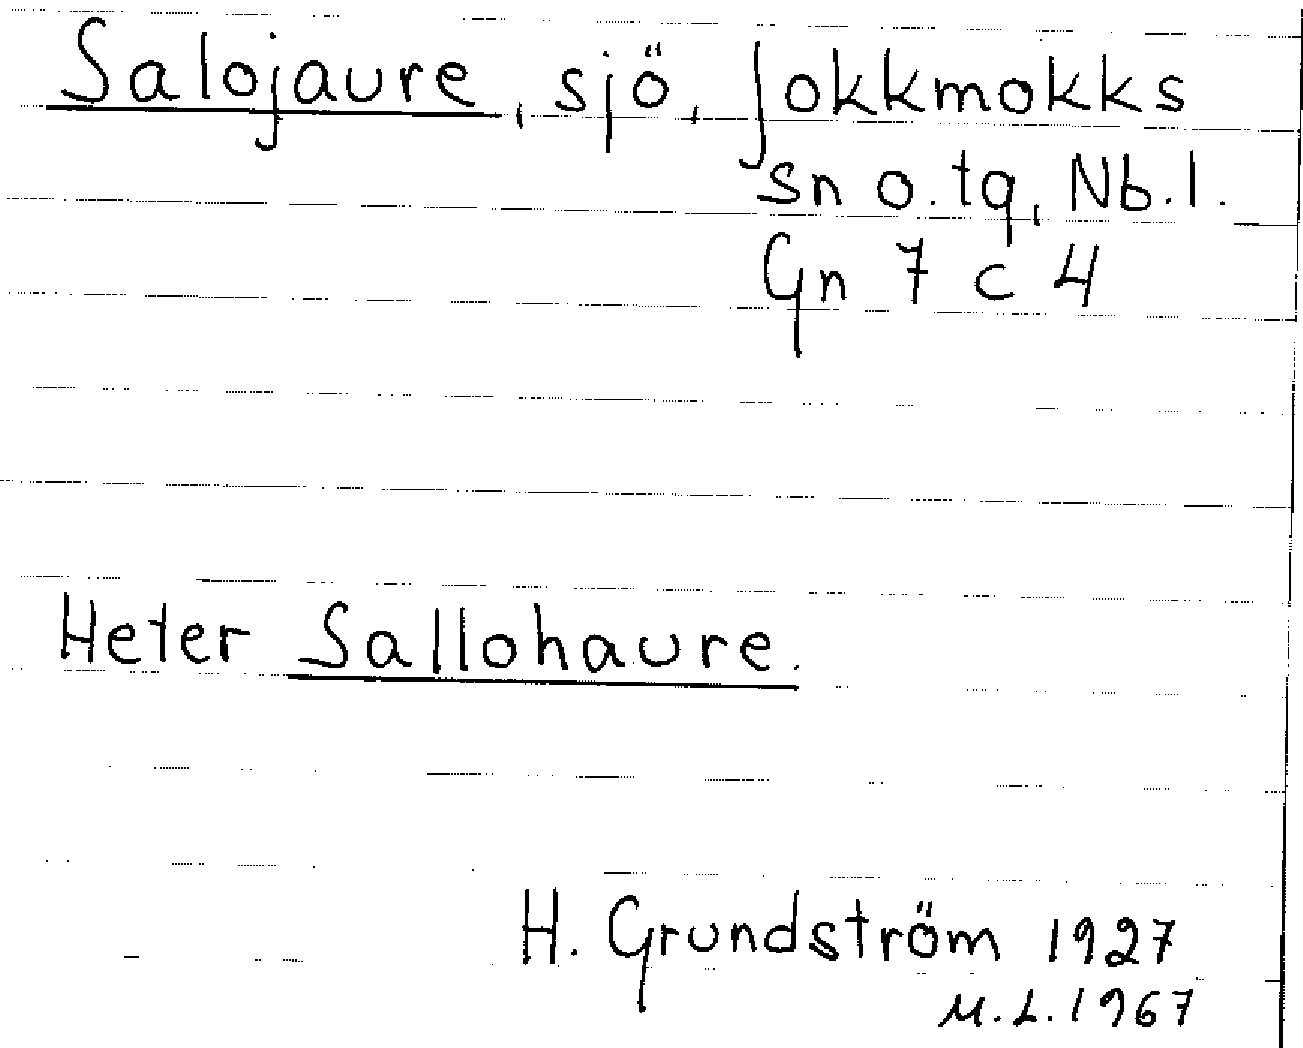 Salojaure, sjö, Jokkmokks
sn o. tg, Nb. l.
Gn 7 c 4
Heter Sallohaure.
H. Grundström 1927
M. L. 1967